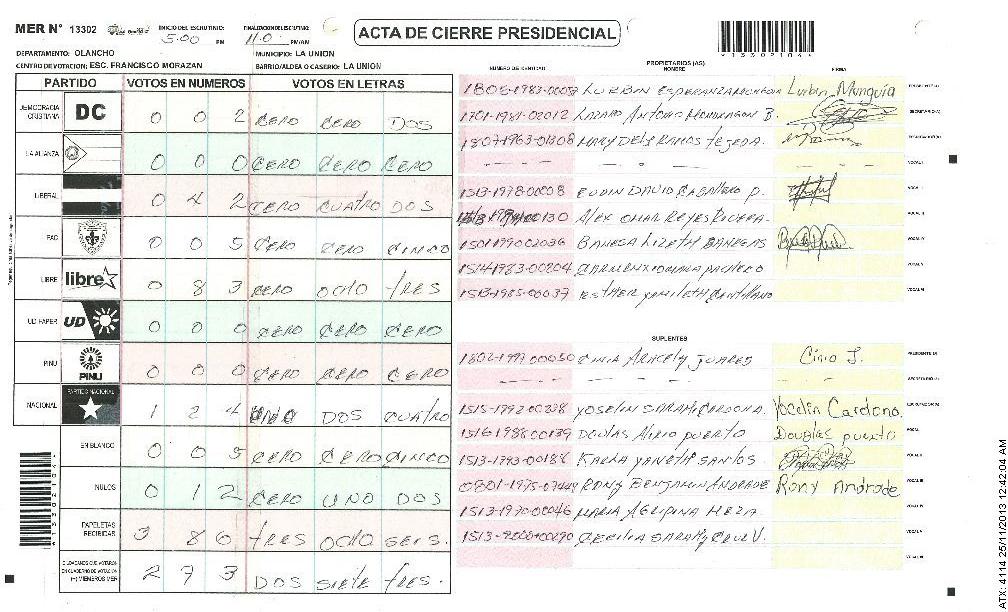 MER N° 13302 INICIO DEL ESCRUTINIO: 5:00 PM FINALIZACION DEL ESCRUTINIO: 11:0 PM/AM
ACTA DE CIERRE PRESIDENCIAL
DEPARTAMENTO: OLANCHO MUNICIPIO: LA UNION
CENTRO DE VOTACION: ESC. FRANCISCO MORAZAN BARRIO/ALDEA O CASERIO: LA UNION
PARTIDO VOTOS EN NUMEROS VOTOS EN LETRAS
DEMOCRACIA CRISTIANA DC 0 0 2 CERO CERO DOS
LA ALIANZA 0 0 0 CERO CERO CERO
LIBERAL 0 4 2 CERO CUATRO DOS
PAC 0 0 5 CERO CERO CINCO
LIBRE libre 0 8 3 CERO OCHO TRES
UD FAPER UD 0 0 0 CERO CERO CERO
PINU PINU 0 0 0 CERO CERO CERO
NACIONAL PARTIDO NACIONAL 1 2 4 UNO DOS CUATRO
EN BLANCO 0 0 5 CERO CERO CINCO
NULOS 0 1 2 CERO UNO DOS
PAPELETAS RECIBIDAS 3 8 6 TRES OCHO SEIS.
CIUDADANOS QUE VOTARON EN CUADERNO DE VOTACION (+) MIEMBROS MER 2 7 3 DOS SIETE TRES.
PROPIETARIOS (AS)
NUMERO DE IDENTIDAD NOMBRE FIRMA
LURBIN ESPERANZA MUNGUIA Lurbin Munguia PRESIDENTE (A)
1701-1981-02012 LAZARO ANTONIO MONDRAGON B. SECRETARIO (A)
1807-1963-01308 MARY DELSI RAMOS TEJEDA. ESCRUTADOR (A)
- - - - - - - VOCAL I
1513-1978-00008 EUDIN DAVID CABALLERO P. VOCAL II
ALEX OMAR REYES RIVERA. VOCAL III
1501-1990-02036 LIZETH BANEGAS VOCAL IV
1514-1983-00204 CARMEN XIOMARA PACHECO VOCAL V
1513-1985-00037 ESTHER YAMILETH VOCAL VI
SUPLENTES
1802-1997-00050 ARACELY JUARES PRESIDENTE (A)
- - - - - - - SECRETARIO (A)
1515-1992-00238 YOSELIN SARAHI CARDONA. Yocelin Cardona. ESCRUTADOR (A)
1516-1988-00139 DOUGLAS ALIRIO PUERTO Douglas puerto VOCAL I
1513-1993-00186 KARLA YANETH SANTOS. VOCAL II
RONY BENJAMIN ANDRADE Rony Andrade VOCAL III
1513-1970-00046 MARIA AGRIPINA MEZA. VOCAL IV
1513-9000-00290 CECILIA SARAHY CRUZ V. VOCAL V
VOCAL VI
ATX: 4114 25/11/2013 12:42:04 AM